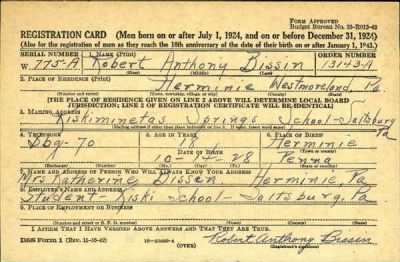 FORM APPROVED
Budget Bureau No. 33-R012-42
REGISTRATION CARD (Men born on or after July 1, 1924, and on or before December 31, 1924)
(Also for the registration of men as they reach the 18th anniversary of the date of their birth on or after January 1, 1943.)
SERIAL NUMBER 1. NAME (Print) ORDER NUMBER
W 775-A Robert Anthony Bissin 13143-A
(First) (Middle) (Last)
2. PLACE OF RESIDENCE (Print)
Herminie Westmoreland, Pa
(Number and street) (Town, township, village, or city) (County) (State)
[THE PLACE OF RESIDENCE GIVEN ON LINE 2 ABOVE WILL DETERMINE LOCAL BOARD
JURISDICTION; LINE 2 OF REGISTRATION CERTIFICATE WILL BE IDENTICAL]
3. MAILING ADDRESS
Kiskiminetas Springs School-Saltsburg
Pa
4. TELEPHONE 5. AGE IN YEARS 6. PLACE OF BIRTH
70 18 Herminie
DATE OF BIRTH
Penna
(Exchange) (Number) (Mo.) (Day) (Yr.) (State or country)
7. NAME AND ADDRESS OF PERSON WHO WILL ALWAYS KNOW YOUR ADDRESS
Mrs Katherine Bissen, Herminie, Pa
8. EMPLOYER'S NAME AND ADDRESS
Student-Kiski School-Saltsburg, Pa
9. PLACE OF EMPLOYMENT OR BUSINESS
(Number and street or R. F. D. number) (Town) (County) (State)
I AFFIRM THAT I HAVE VERIFIED ABOVE ANSWERS AND THAT THEY ARE TRUE.
DSS Form 1 (Rev. 11-16-42) (OVER) Robert Anthony Bissin
(Registrant's signature)